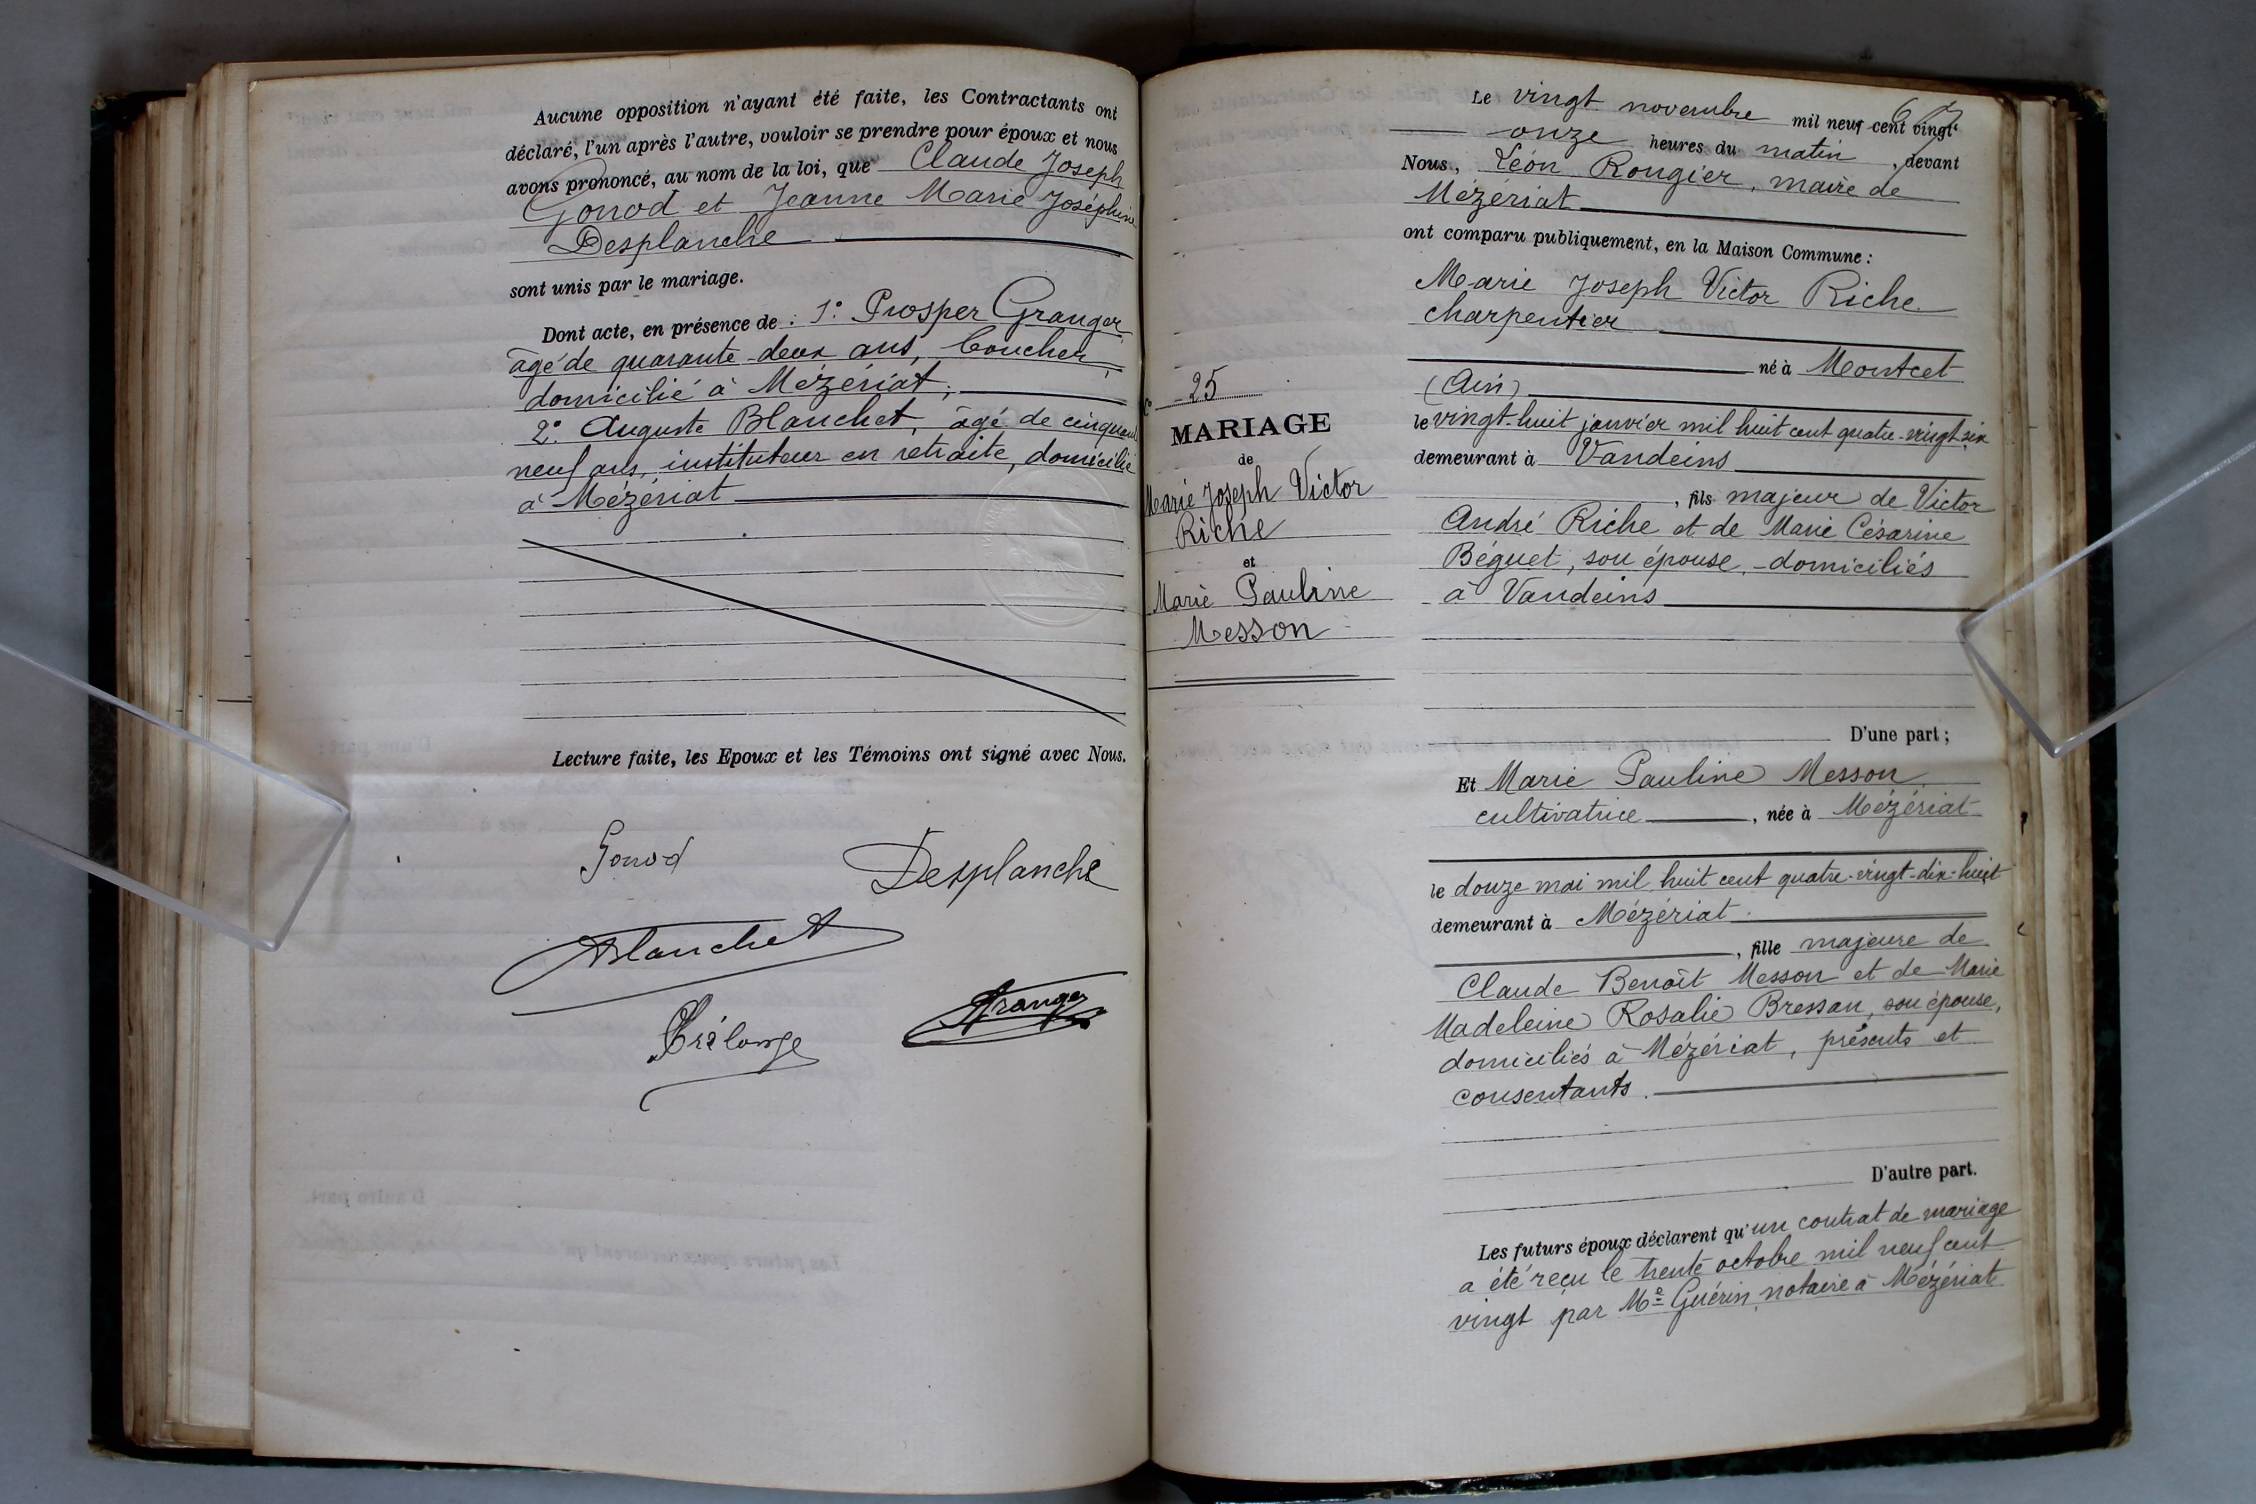 Aucune opposition n'ayant été faite, les Contractants ont
déclaré, l'un après l'autre, vouloir se prendre pour époux et nous
avons prononcé, au nom de la loi, que Claude Joseph
Gonod et Jeanne Marie Joséphine
Desplanche
sont unis par le mariage.
Dont acte, en présence de : 1° Prosper Granger
âgé de quarante-deux ans, boucher,
domicilié à Mézériat;
2° Auguste Blanchet, âgé de cinquante
neuf ans, instituteur en retraite, domicilié
à Mézériat
Lecture faite, les Epoux et les Témoins ont signé avec Nous.
Gonod
Desplanche
Blanchet
Granger
N° 25
MARIAGE
de
Marie Joseph Victor
Riche
et
Marie Pauline
Messon
Le vingt novembre mil neuf cent vingt
onze heures du matin, devant
Nous, Léon Rougier, maire de
Mézériat
ont comparu publiquement, en la Maison Commune :
Marie Joseph Victor Riche
charpentier
né à Montcet
(Ain)
le vingt-huit janvier mil huit cent quatre-vingt-six
demeurant à Vandeins
, fils majeur de Victor
André Riche et de Marie Césarine
Béguet, son épouse, domiciliés
à Vandeins
D'une part ;
Et Marie Pauline Messon
cultivatrice, née à Mézériat
le douze mai mil huit cent quatre-vingt-dix-huit
demeurant à Mézériat
, fille majeure de
Claude Benoît Messon et de Marie
Madeleine Rosalie Bressan, son épouse,
domiciliés à Mézériat, présents et
consentants.
D'autre part.
Les futurs époux déclarent qu'un contrat de mariage
a été reçu le trente octobre mil neuf cent
vingt par Me Guérin, notaire à Mézériat